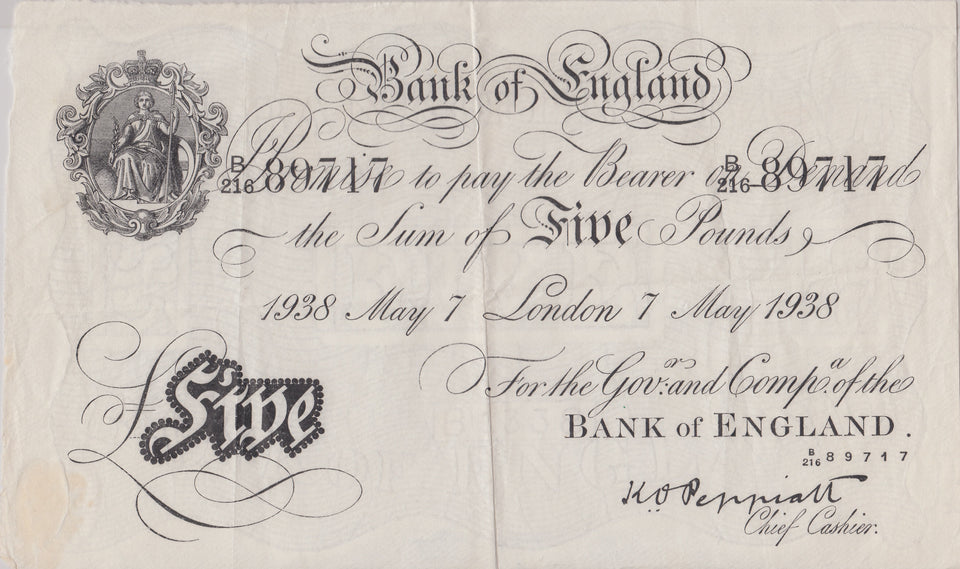 Bank of England
B/216 89717 I Promise to pay the Bearer on Demand B/216 89717
the Sum of Five Pounds
1938 May 7 London 7 May 1938
For the Govr. and Compa. of the
BANK of ENGLAND.
£ Five
B/216 89717
K.O. Peppiatt
Chief Cashier.